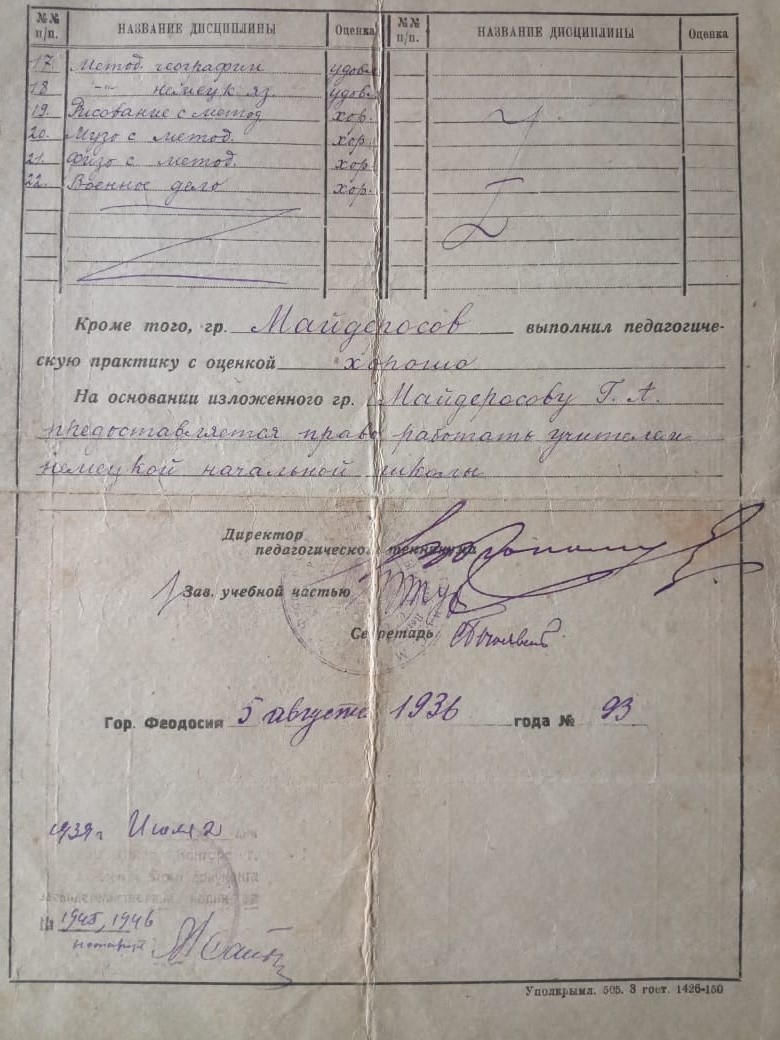 №№ п/п. НАЗВАНИЕ ДИСЦИПЛИНЫ Оценка №№ п/п. НАЗВАНИЕ ДИСЦИПЛИНЫ Оценка
17. Метод. географии удовл.
18 -"- немецк яз. удовл.
19. Рисование с метод. хор.
20. Музо с метод. хор.
21. Физо с метод. хор.
22. Военное дело хор.
Кроме того, гр. Майдеросов выполнил педагогиче-
скую практику с оценкой хорошо
На основании изложенного гр. Майдеросову Г. А.
предоставляется право работать учителем
немецкой начальной школы
Директор
педагогического техникума
Зав. учебной частью
Секретарь
Гор. Феодосия 5 августа 1936 года № 93
1939 г Июля 2
1945, 1946
нотариус
Уполкрымл. 505. З гост. 1426-150